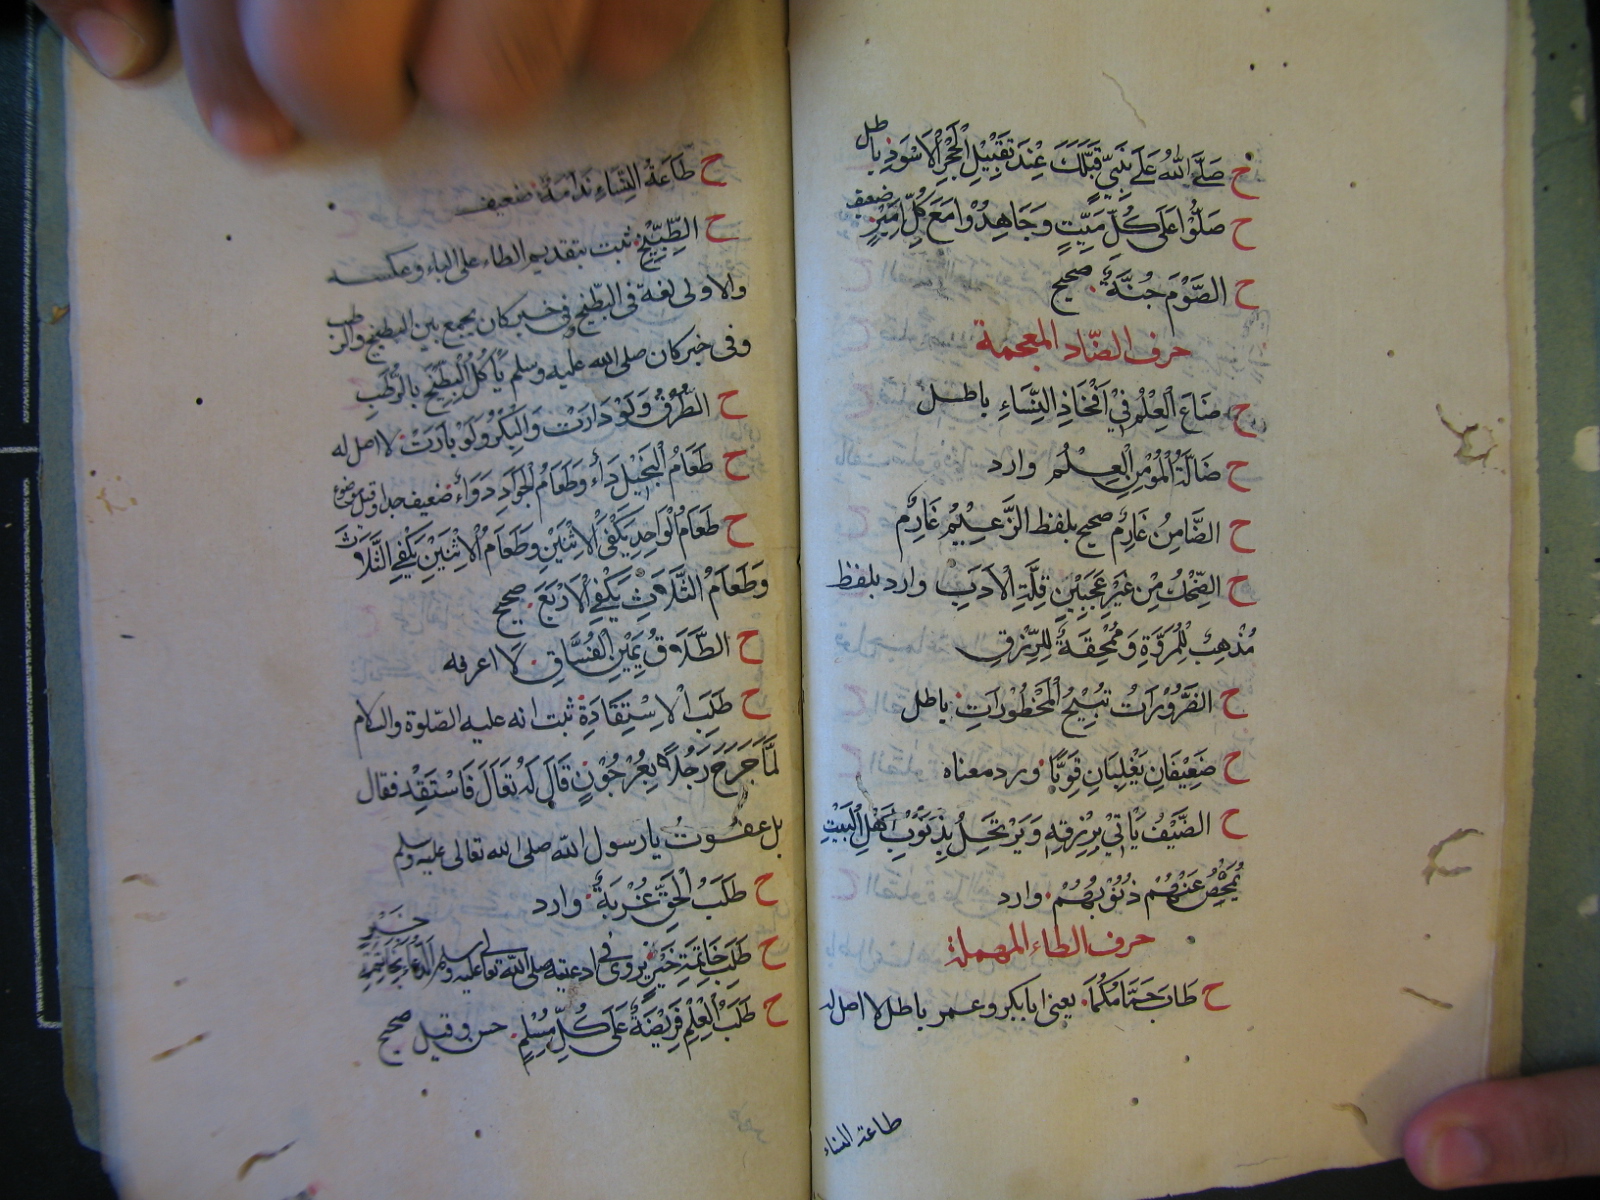 ح صَلَّى اللّٰهُ عَلَى نَبِيٍّ قَبَّلَكَ عِنْدَ تَقْبِيلِ الْحَجَرِ الْاَسْوَدِ باطل
ح صَلُّوْا عَلَى كُلِّ مَيِّتٍ وَجَاهِدُوْا مَعَ كُلِّ اَمِيْرٍ ضعيف
ح الصَّوْمُ جُنَّةٌ صحيح
حرف الضاد المعجمة
ح ضَاعَ الْعِلْمُ فِيْ اَفْخَاذِ النِّسَاءِ باطل
ح ضَالَّةُ الْمُؤْمِنِ الْعِلْمُ وارد
ح الضَّامِنُ غَارِمٌ صحيح بلفظ الزَّعِيْمُ غَارِمٌ
ح الضِّحْكُ مِنْ غَيْرِ عَجَبٍ مِنْ قِلَّةِ الْاَدَبِ وارد بلفظ
مُذْهِبٌ لِلْمُرُوَّةِ وَمُمْحِقَةٌ لِلرِّزْقِ
ح الضَّرُوْرَاتُ تُبِيْحُ الْمَحْظُوْرَاتِ باطل
ح ضَعِيْفَانِ يَغْلِبَانِ قَوِيًّا ورد معناه
ح الضَّيْفُ يَاْتِيْ بِرِزْقِهٖ وَيَرْتَحِلُ بِذُنُوْبِ اَهْلِ الْبَيْتِ
يُمَحِّصُ عَنْهُمْ ذُنُوْبَهُمْ وارد
حرف الطاء المهملة
ح طَابَ حَمَّامُكُمَا يعنى ابابكر وعمر باطل لا اصل له
طاعة النساء
ح طَاعَةُ النِّسَاءِ نَدَامَةٌ ضعيف
ح الطِّبِّيْخُ ثبت بتقديم الطاء على الباء وعكسه
والاولى لغة فى البطّيخ وفى خبر كان يجمع بين البطيخ والرطب
وفى خبر كان صلى الله عليه وسلم يَاْكُلُ الْبِطِّيْخَ بِالرُّطَبِ
ح الطُّرُقُ وَلَوْ دَارَتْ وَالْبِكْرُ وَلَوْ بَارَتْ لا اصل له
ح طَعَامُ الْبَخِيْلِ دَاءٌ وَطَعَامُ الْجَوَادِ دَوَاءٌ ضعيف جدا وقيل موضوع
ح طَعَامُ الْوَاحِدِ يَكْفِى الْاِثْنَيْنِ وَطَعَامُ الْاِثْنَيْنِ يَكْفِى الثَّلَاثَ
وَطَعَامُ الثَّلَاثِ يَكْفِى الْاَرْبَعَ صحيح
ح الطَّلَاقُ يَمِيْنُ الْفُسَّاقِ لا اعرفه
ح طَلَبُ الْاِسْتِقَادَةِ ثبت انه عليه الصلوة والسلام
لَمَّا جَرَحَ رَجُلًا بِعُرْجُوْنٍ قَالَ لَهُ تَعَالَ فَاسْتَقِدْ فقال
بل عفوتُ يا رسول الله صلى الله تعالى عليه وسلم
ح طَلَبُ الْحَقِّ غُرْبَةٌ وارد
ح طَلَبُ خَاتِمَةِ خَيْرٍ يروى فى ادعيته صلى الله تعالى عليه وسلم الدُّعَاءُ بِخَاتِمَةِ خَيْرٍ
ح طَلَبُ الْعِلْمِ فَرِيْضَةٌ عَلَى كُلِّ مُسْلِمٍ حسن وقيل صحيح